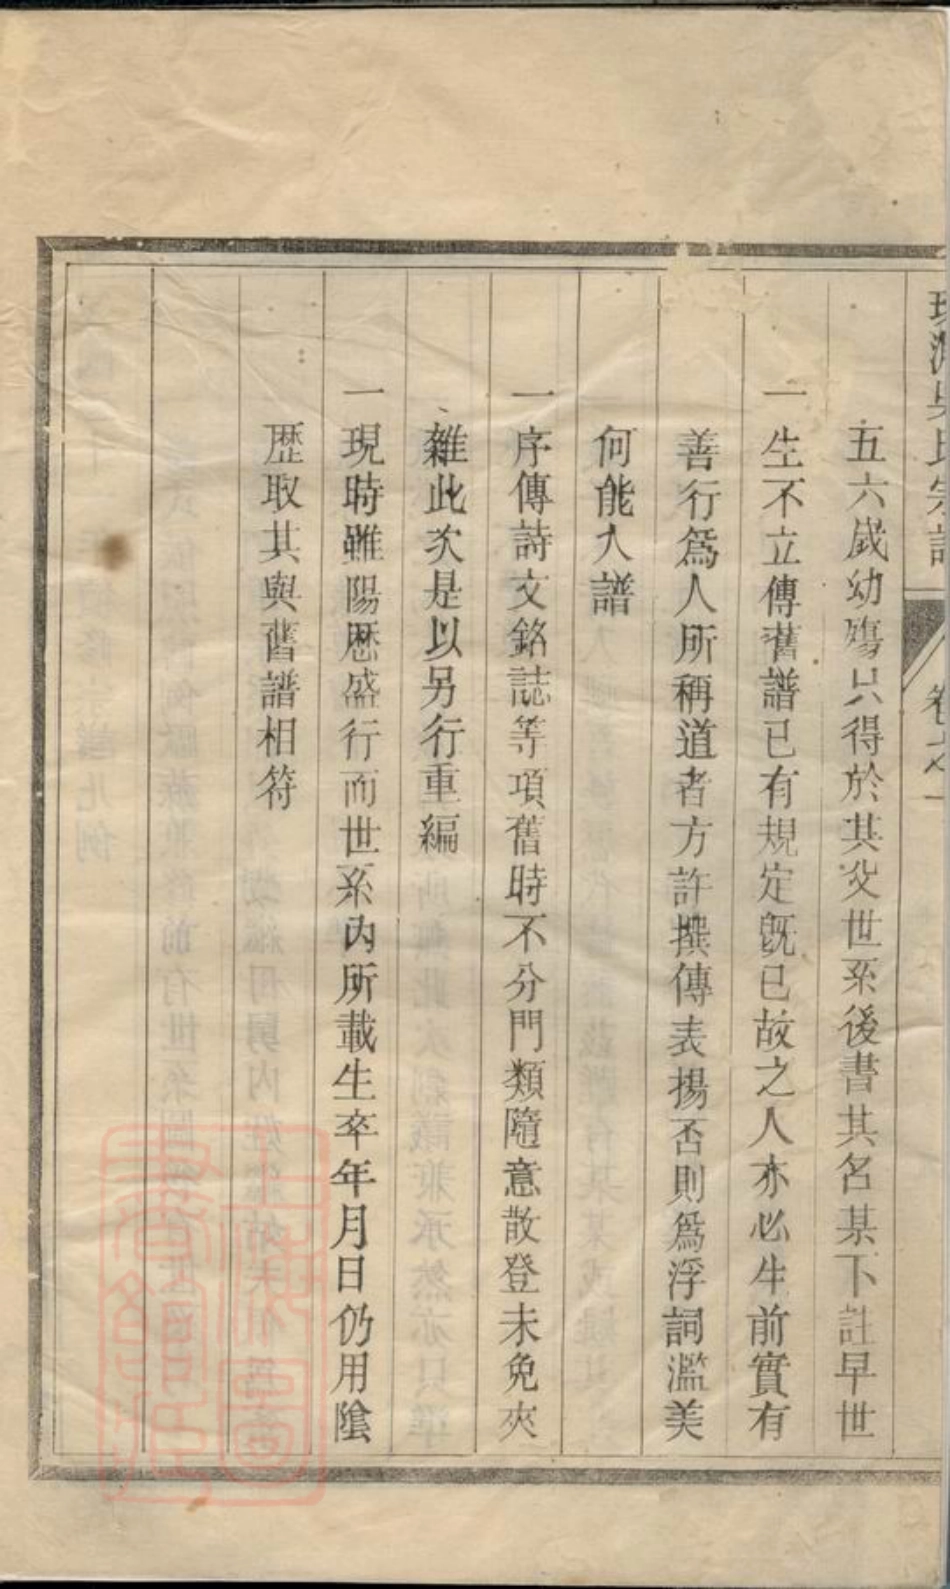 吳氏宗譜
卷之一
五六歲幼殤只得於其父世系後書其名某下註早世
一生不立傳舊譜已有規定旣已故之人亦必生前實有
善行爲人所稱道者方許撰傳表揚否則爲浮詞濫美
何能入譜
一序傳詩文銘誌等項舊時不分門類隨意散登未免夾
雜此次是以另行重編
一現時雖陽歷盛行而世系內所載生卒年月日仍用陰
歷取其與舊譜相符